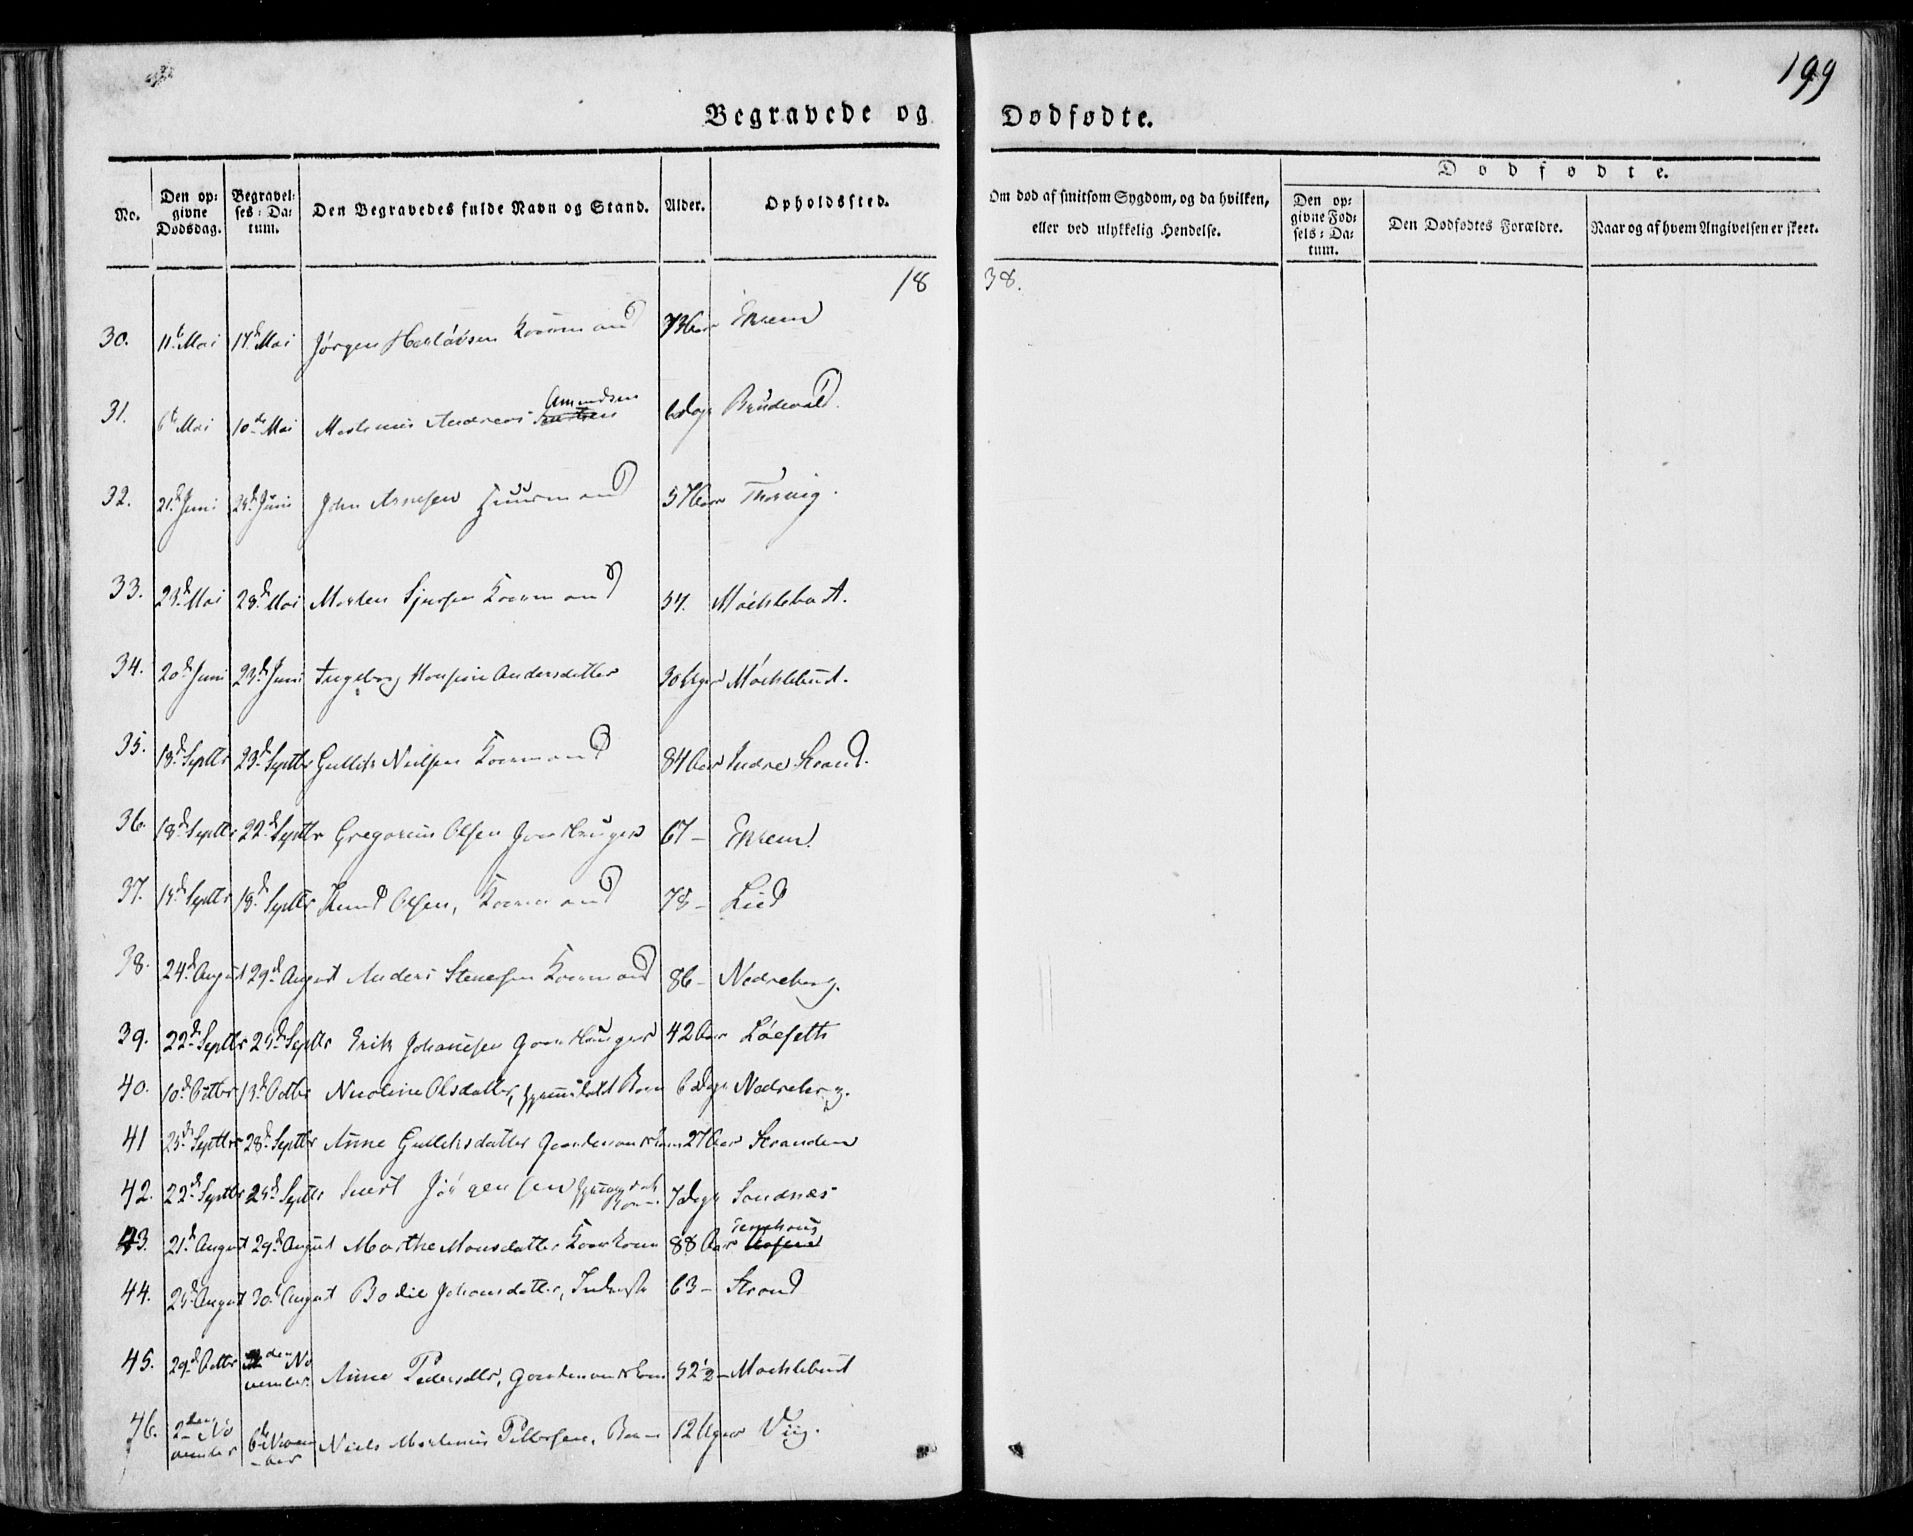 199
Begravede og Dødfødte.
No.
Den opgivne Dødsdag.
Begravelses-Datum.
Den Begravedes fulde Navn og Stand.
Alder.
Opholdssted.
Om død af smitsom Sygdom, og da hvilken,
eller ved ulykkelig Hendelse.
Dødfødte.
Den opgivne Fødsels-Datum.
Den Dødfødtes Forældre.
Naar og af hvem Angivelsen er skeet.
1838.
30. 11te Mai 17de Mai Jørgen Kaarmand 73 Aar Ekrem
31. 6te Mai 10de Mai Andreas Amundsen 6 Dage Brudevold
32. 21de Juni 25de Juni John Arnesen Huusmand 57 Aar Thorvig.
33. 23de Mai 28de Mai Morten Sjursen Kaarmand 54. Möchlebust.
34. 20de Juni 23de Juni Ingeborg Andersdatter 30 Uger Möchlebust.
35. 18de Septbr 23de Septbr Gullich Nielsen Kaarmand 84 Aar Indre Strand.
36. 18de Septbr 22de Septbr Gregorius Olsen Gaardbruger 67 – Ekrem
37. 15de Septbr 18de Septbr Knud Olsen, Kaarmand 78 – Lied
38. 24de August 29de August Anders Stenersen Kaarmand 86 – Nedreberg.
39. 22de Septbr 25de Septbr Erik Johansen Gaardbruger 42 Aar Löeseth
40. 10de Octbr 13de Octbr Nicoline Olsdatter, hjemmedøbt Barn 6 Dage Nedreberg.
41 25de Septbr 28de Septbr Anne Gullichsdatter Gaardmandskone 27 Aar Stranden
42. 22de Septbr 25de Septbr Sivert Jörgensen hjemmedøbt Barn 7 Dage Sandnæs
43. 21de August 29de August Marthe Monsdatter Kaarkone 88 Aar
44. 25de August 30te August Bodil Johansdatter, Inderst 63 – Strand
45. 29de Octbr den November Anne Pedersdtr, Gaardmandskone 52 1/2 – Möchlebust
46. 2den November 6te November Niels Martinus Pettersen, Barn 12 Uger Viig.